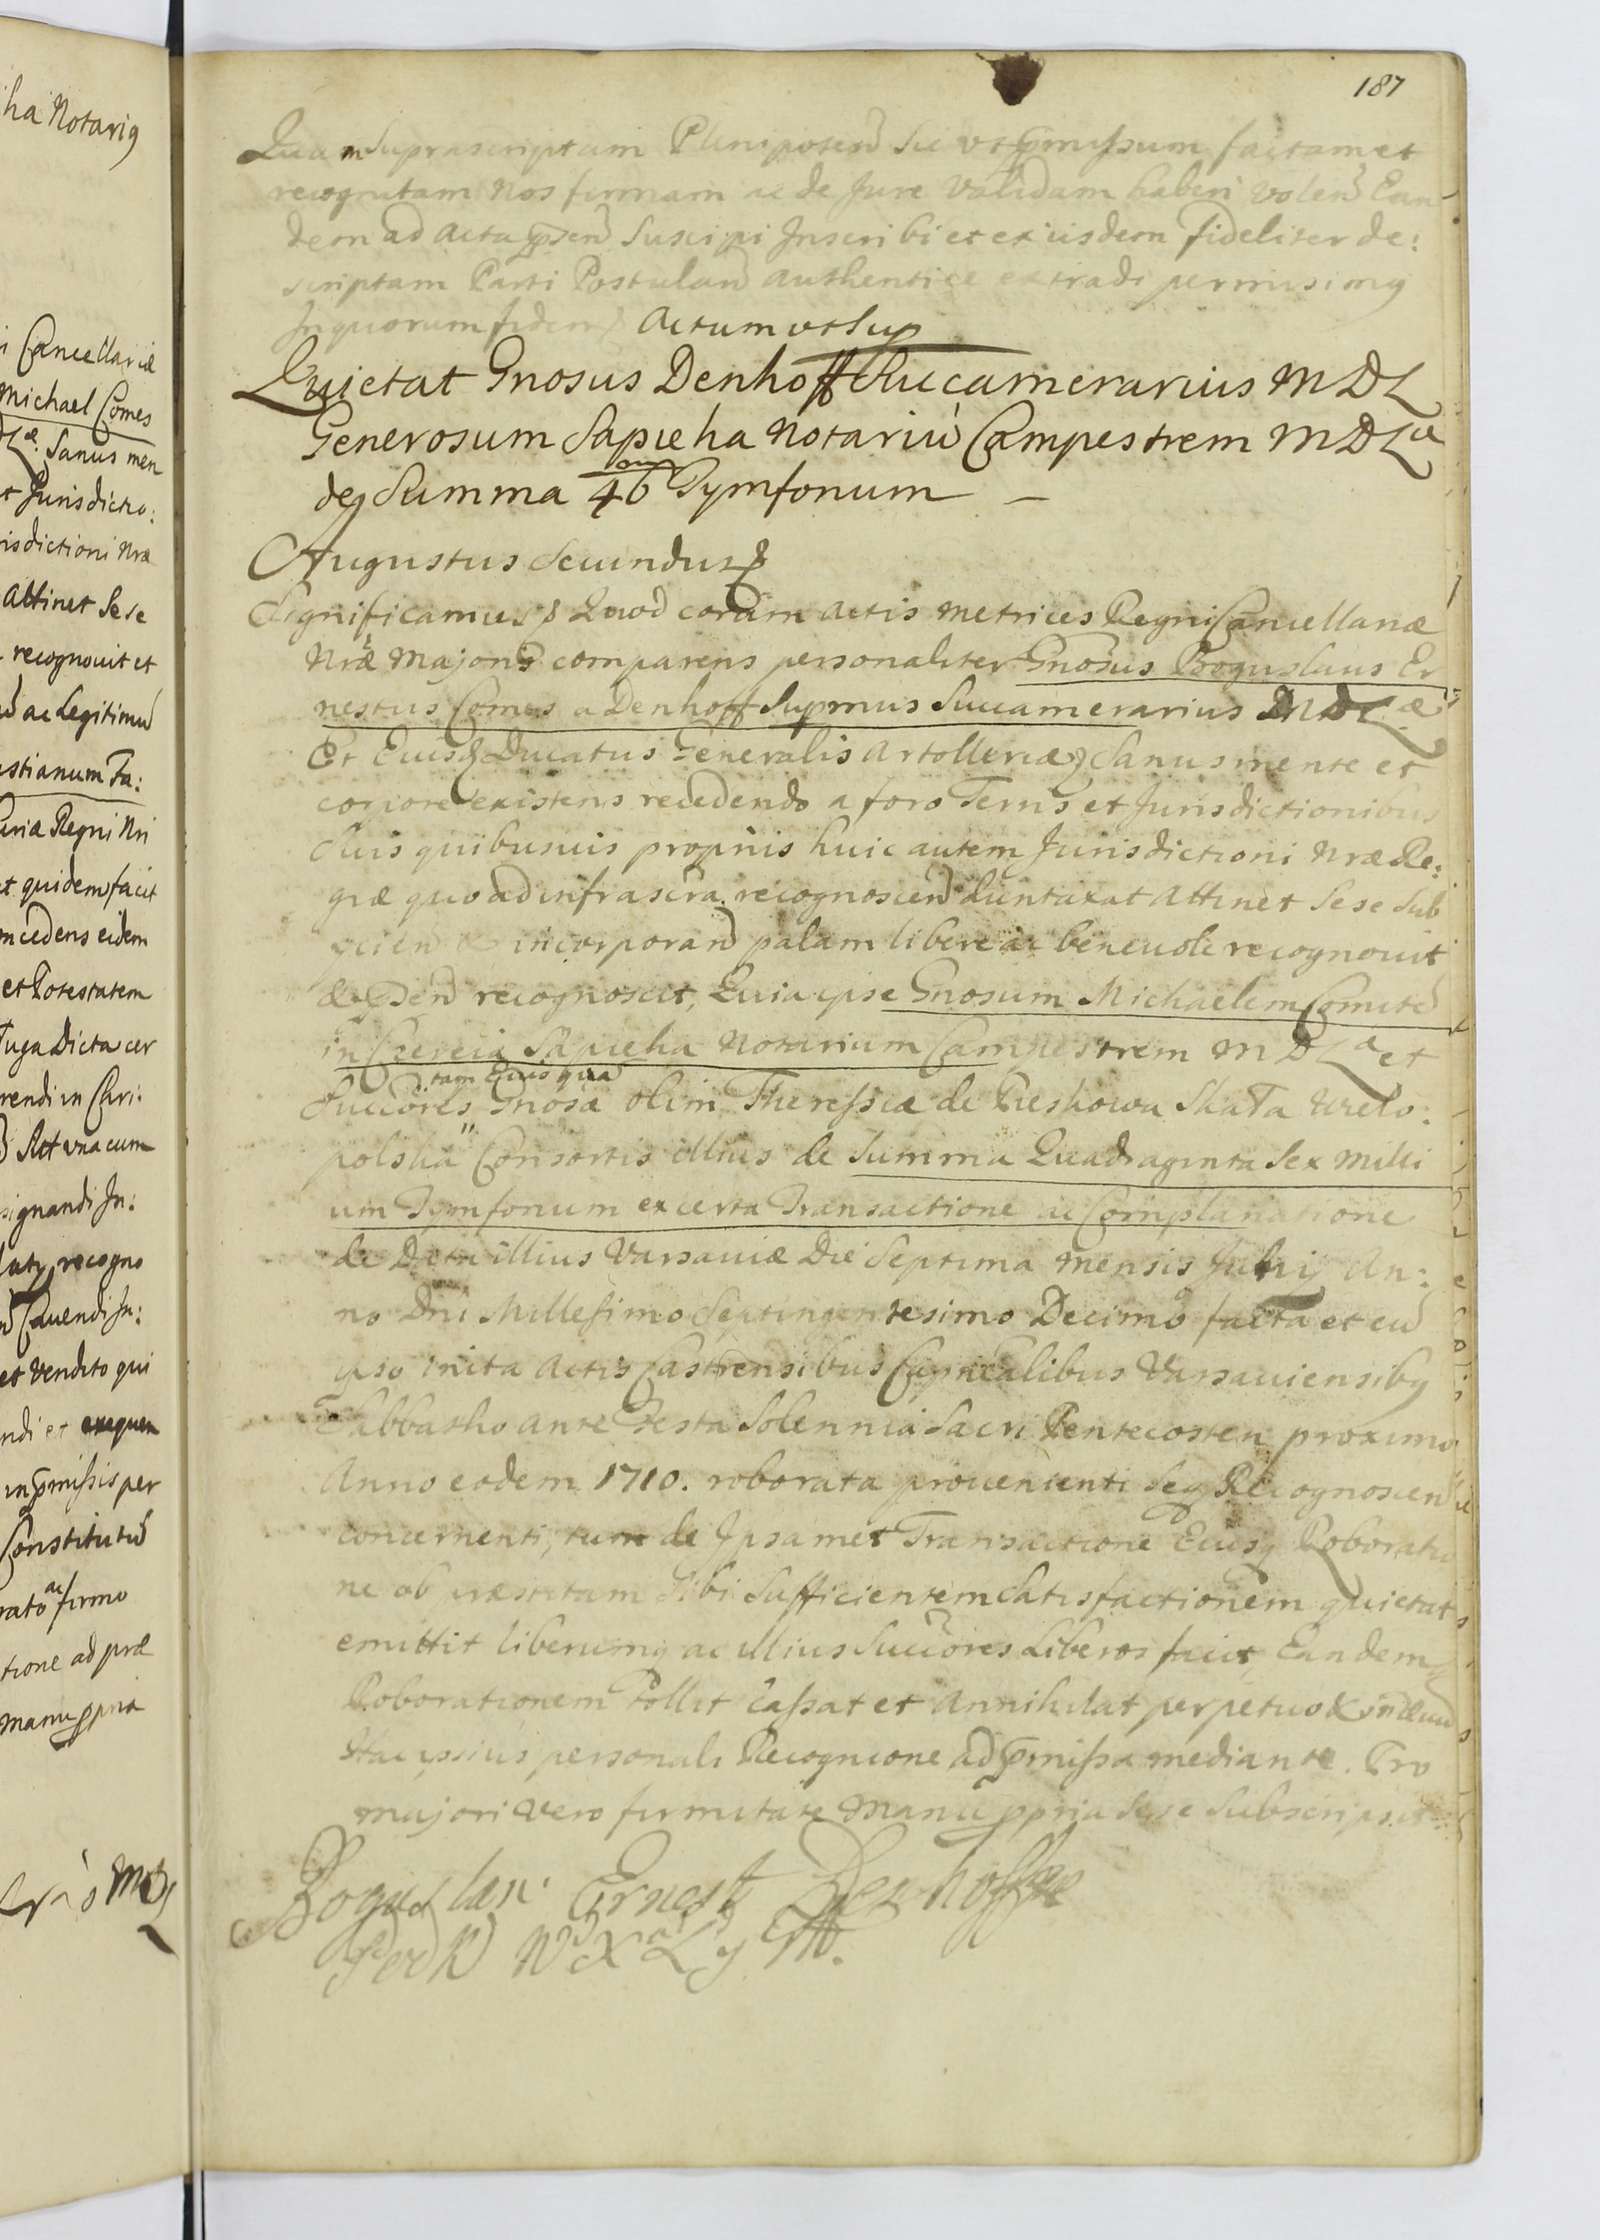 187
ha Notarig
i Cancellariæ
Michael Comes
DLæ. Sanus men
et Jurisdictio:
isdictioni Nræ
Attinet Sese
recognovit et
ac Legitimũ
stianum Fa:
uriæ Regni Nri
et quidem facit
ncedens eidem
et Potestatem
Fuga Dicta cer
rendi in Cari:
Act vna cum
signandi In:
recogno
Cauendi In:
et Vendito qui
ndi et exequen
in pmissis per
Constitutũ
rato ac firmo
tione ad præ
manu ppria
Quam Suprascriptam Plenipotenẽ Sic vt pmissum factam et
recognitam Nos firmam ac de Jure Validam haberi volenẽ Ean
dem ad Acta psenẽ Suscipi Inscribi et ex iisdem fideliter de:
scriptam Parti Postulanẽ Authentice extradi permisimg
In quorum fidem Actum vt Sup
Quietat Gnosus Denhoff Succamerarius M D L
Generosum Sapieha Notariũ Campestrem M D Læ
deq Summa 46 m Tymfonum —
Augustus Secundus
Significamus Quod coram Actis Metrices Regni Cancellariæ
Nræ Majoris comparens personaliter Gnosus Boguslaus Er
nestus Comes a Denhoff Supmus Succamerarius M D Læ
Et Eiusq Ducatus Generalis Artolleriæ Sanus mente et
corpore existens recedendo a foro Terris et Jurisdictionibus
Suis quibusuis proprijs huic autem Jurisdictioni Nræ Re:
giæ quo ad infrascra recognoscenẽ duntaxat Attinet Sese Sub
yciẽn & incorporanẽ palam libere ac beneuole recognovit
& psenẽ recognoscit, Quia ipse Gnosum Michaelem Comitẽ
in Czereia Sapieha Notarium Campestrem M D La et
Succores tam Eius qua Gnosæ olim Theressiæ de Pieskowa Skała Wielo:
polska Consortis illius de Summa Quadraginta Sex Milli
um Tymfonum ex certa Transactione ac Complanatione
de Data illius Varsaviæ Die Septima Mensis Junij An:
no Dni Millesimo Septingentesimo Decimo facta et eũ
ipso inita Actis Castrensibus Capitalibus Varsauiensibg
Sabbatho ante Festa Solennia Sacri Pentecosten proximo
Anno eodem 1710. roborata prouenienti Seq Recognoscenẽ
concernenti, tum de Ipsamet Transactione Eiusq Roboratio
ne ob præstitam Sibi Sufficientem Satisfactionem quietat
emittit liberumq ac illius Succores Liberos facit, Eandem
Roborationem Tollit Cassat et Annihilat perpetuo & in æuũ
Hac ipsius personali Recognione ad pmissa mediante. Pro
majori vero firmitate Manu ppria Sese Subscripsit
Boguslaw Ernest Denhoff